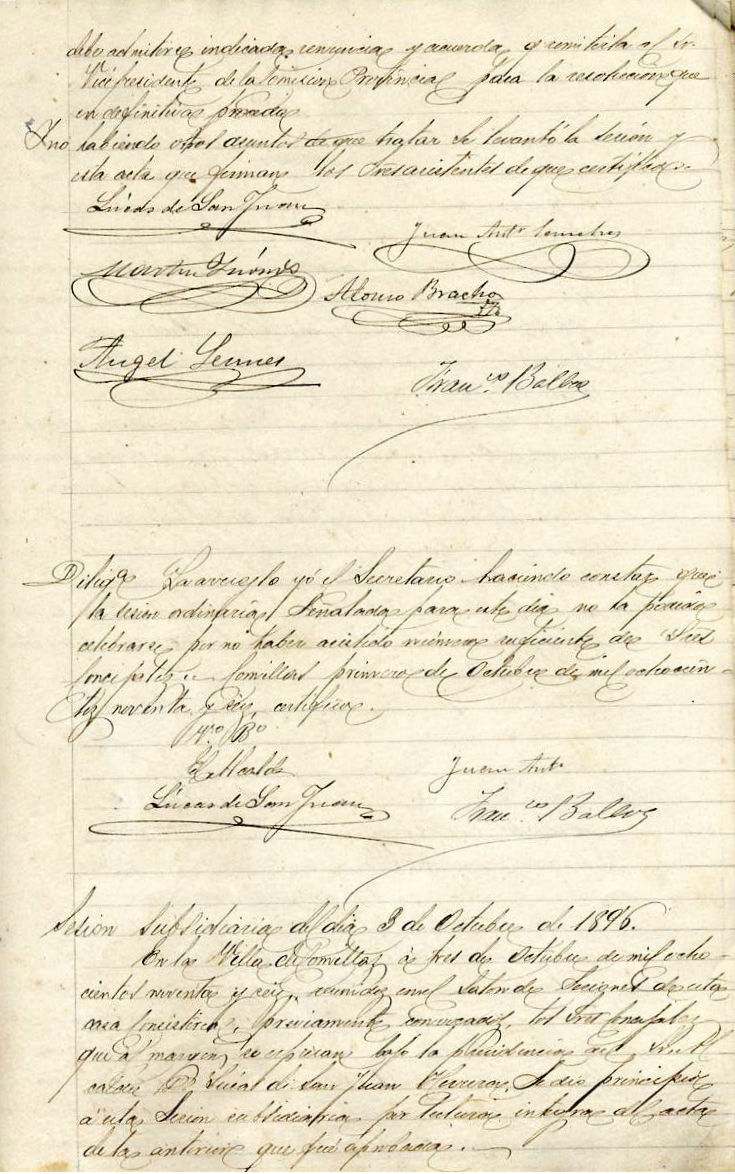 debe admitirse indicada renuncia y acuerda q remitirla al Sr.
Vicepresidente de la Comision Provincial para la resolucion que
en definitiva proceda
Y no habiendo otros asuntos de que tratar se levantó la sesión y
esta acta que firman los Sres asistentes de que certifico.
Lúcas de San Juan
Juan Antº
Martin
Alonso Bracho
Angel
Franco. Balboa
Diliga La arreglo yó el Secretario haciendo constar que
la sesion ordinaria señalada para este dia no ha podido
celebrarse por no haber asistido número suficiente de Sres
Concejales. Comillas primero de Octubre de mil ochocien-
tos noventa y seis, certifico.
Vº Bº
El Alcalde
Juan Antº
Lúcas de San Juan
Franco. Balboa
Sesion Subsidiaria del dia 3 de Octubre de 1896.
En la Villa de Comillas á tres de Octubre de mil ocho-
cientos noventa y seis, reunidos en el Salon de Sesiones de esta
casa Consistorial, previamente convocados, los Sres Concejales
que al margen se expresan bajo la presidencia del Sr. Al-
calde D. Lúcas de San Juan Herrera, se dio principio
á esta Sesion subsidiaria por lectura integra del acta
de la anterior que fué aprobada.